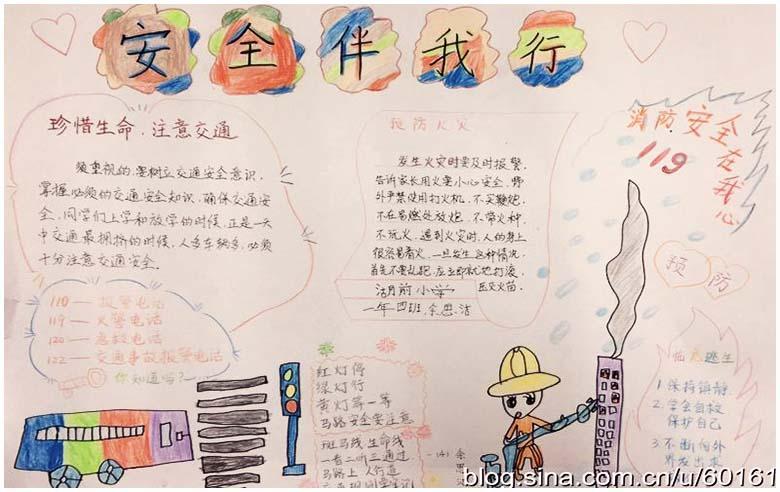 安全伴我行
珍惜生命，注意交通
须重视的，要树立交通安全意识，
掌握必须的交通安全知识，确保交通安
全，同学们上学和放学的时候，正是一天
中交通最拥挤的时候，人多车辆多，必须
十分注意交通安全。
110——报警电话
119——火警电话
120——急救电话
122——交通事故报警电话
你知道吗?
预防火灾
发生火灾时要及时报警，
告诉家长用火要小心安全，野
外严禁使用打火机，不买鞭炮，
不在易燃处放炮，不带火种，
不玩火，遇到火灾时，人的身上
很容易着火，一旦发生这种情况，
首先不要乱跑，应立即就地打滚，
压灭火苗，
湖前小学
一年四班，余思洁
消防安全在我心
119
预防
逃生
1.保持镇静
2.学会自救
保护自己
3.不断向外
界发出求
红灯停
绿灯行
黄灯等一等
马路安全要注意
斑马线生命线
一看二听三通过
马路上人行道
(4) 余
思
blog.sina.com.cn/u/60161